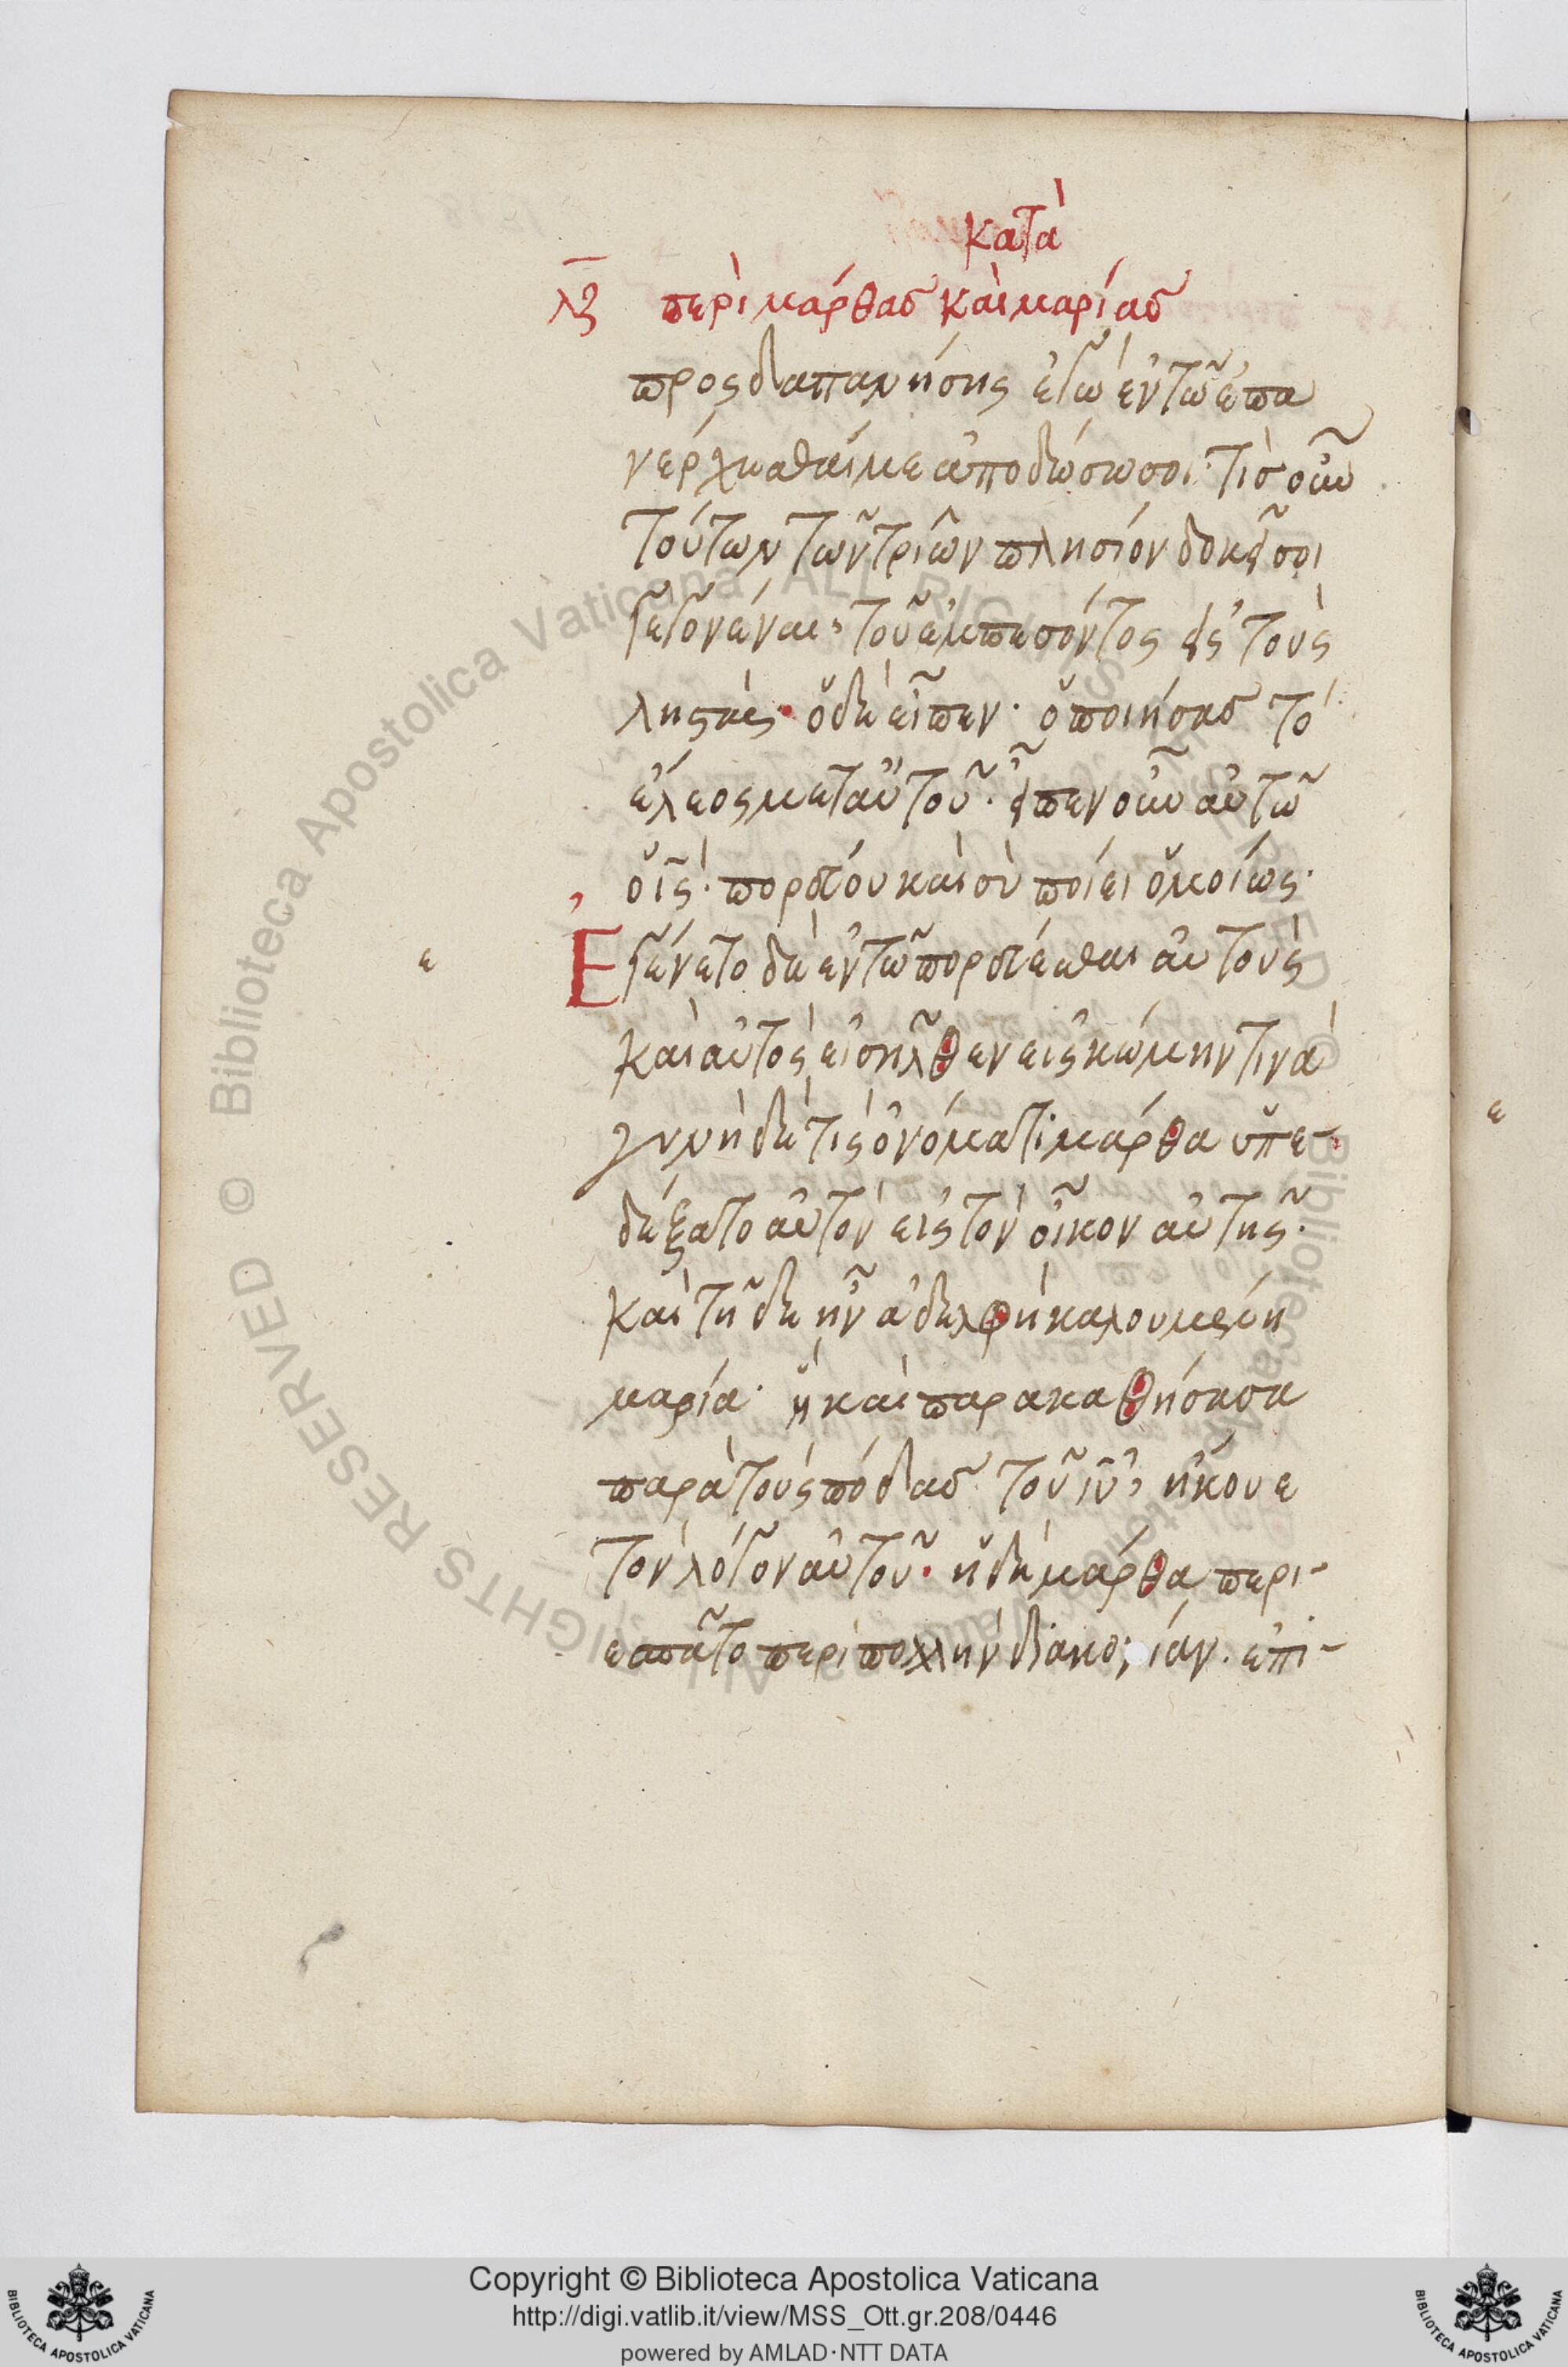 κατὰ
λζ περὶ μάρθας καὶ μαρίας
προσδαπανήσης ἐγὼ ἐν τῶ ἐπα
νέρχεσθαί με ἀποδώσω σοι· τίς οὖν
τούτων τῶν τριῶν πλησίον δοκεῖ σοι
γεγονέναι, τοῦ ἐμπεσόντος εἰς τοὺς
ληστάς· ὁ δὲ εἶπεν· ὁ ποιήσας τὸ
ἔλεος μετ αὐτοῦ· εἶπεν οὖν αὐτῶ
ὁ ις· πορεύου καὶ σὺ ποίει ὁμοίως·
ε Εγένετο δὲ ἐν τῶ πορεύεσθαι αὐτοὺς
καὶ αὐτὸς εἰσῆλθεν εἰς κώμην τινὰ
γυνὴ δέ τις ὀνόματι μάρθα ὑπε-
δέξατο αὐτὸν εἰς τὸν οἶκον αὐτῆς·
καὶ τῆδε ἦν ἀδελφὴ καλουμένη
μαρία· ἣ καὶ παρακαθήσασα
παρὰ τοὺς πόδας τοῦ ιυ, ἤκουε
τὸν λόγον αὐτοῦ· ἡ δὲ μάρθα περι-
εσπᾶτο περὶ πολλὴν διακονίαν· ἐπι-
ε
Copyright © Biblioteca Apostolica Vaticana
http://digi.vatlib.it/view/MSS_Ott.gr.208/0446
powered by AMLAD·NTT DATA
BIBLIOTECA APOSTOLICA VATICANA
BIBLIOTECA APOSTOLICA VATICANA